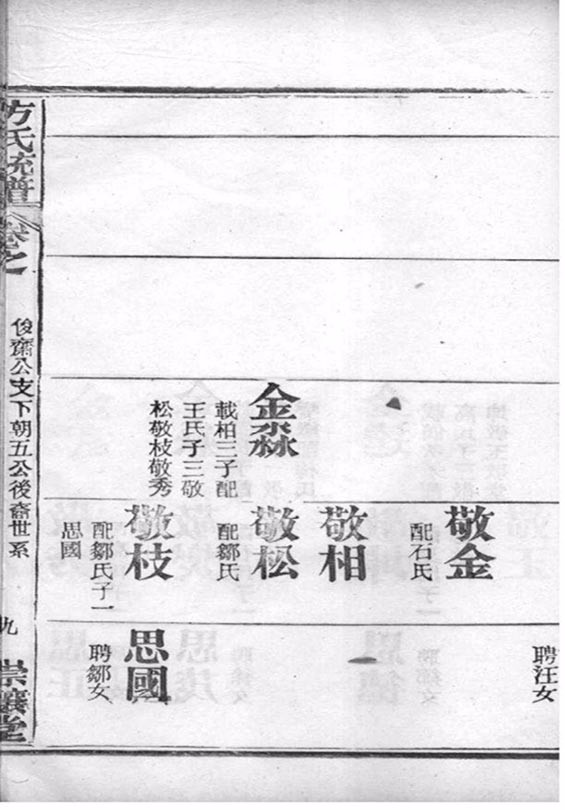 金淼
載柏三子配
王氏子三敬
松敬枝敬秀
敬金
配石氏
敬相
敬松
配鄒氏
敬枝
配鄒氏子一
思國
聘汪女
思國
聘鄒女
方氏統譜
卷之
俊齋公支下朝五公後裔世系
九
崇讓堂